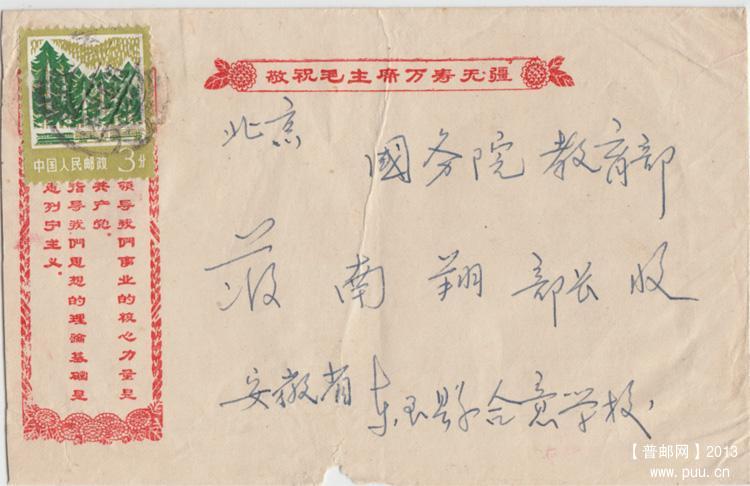 敬祝毛主席万寿无疆
中国人民邮政 3分
领导我們事业的核心力量是
共产党。
指导我們思想的理論基础是
思列宁主义。
北京
國务院教育部
蒋南翔部长收
安徽省东至縣合意学校
【普邮网】2013
www.puu.cn